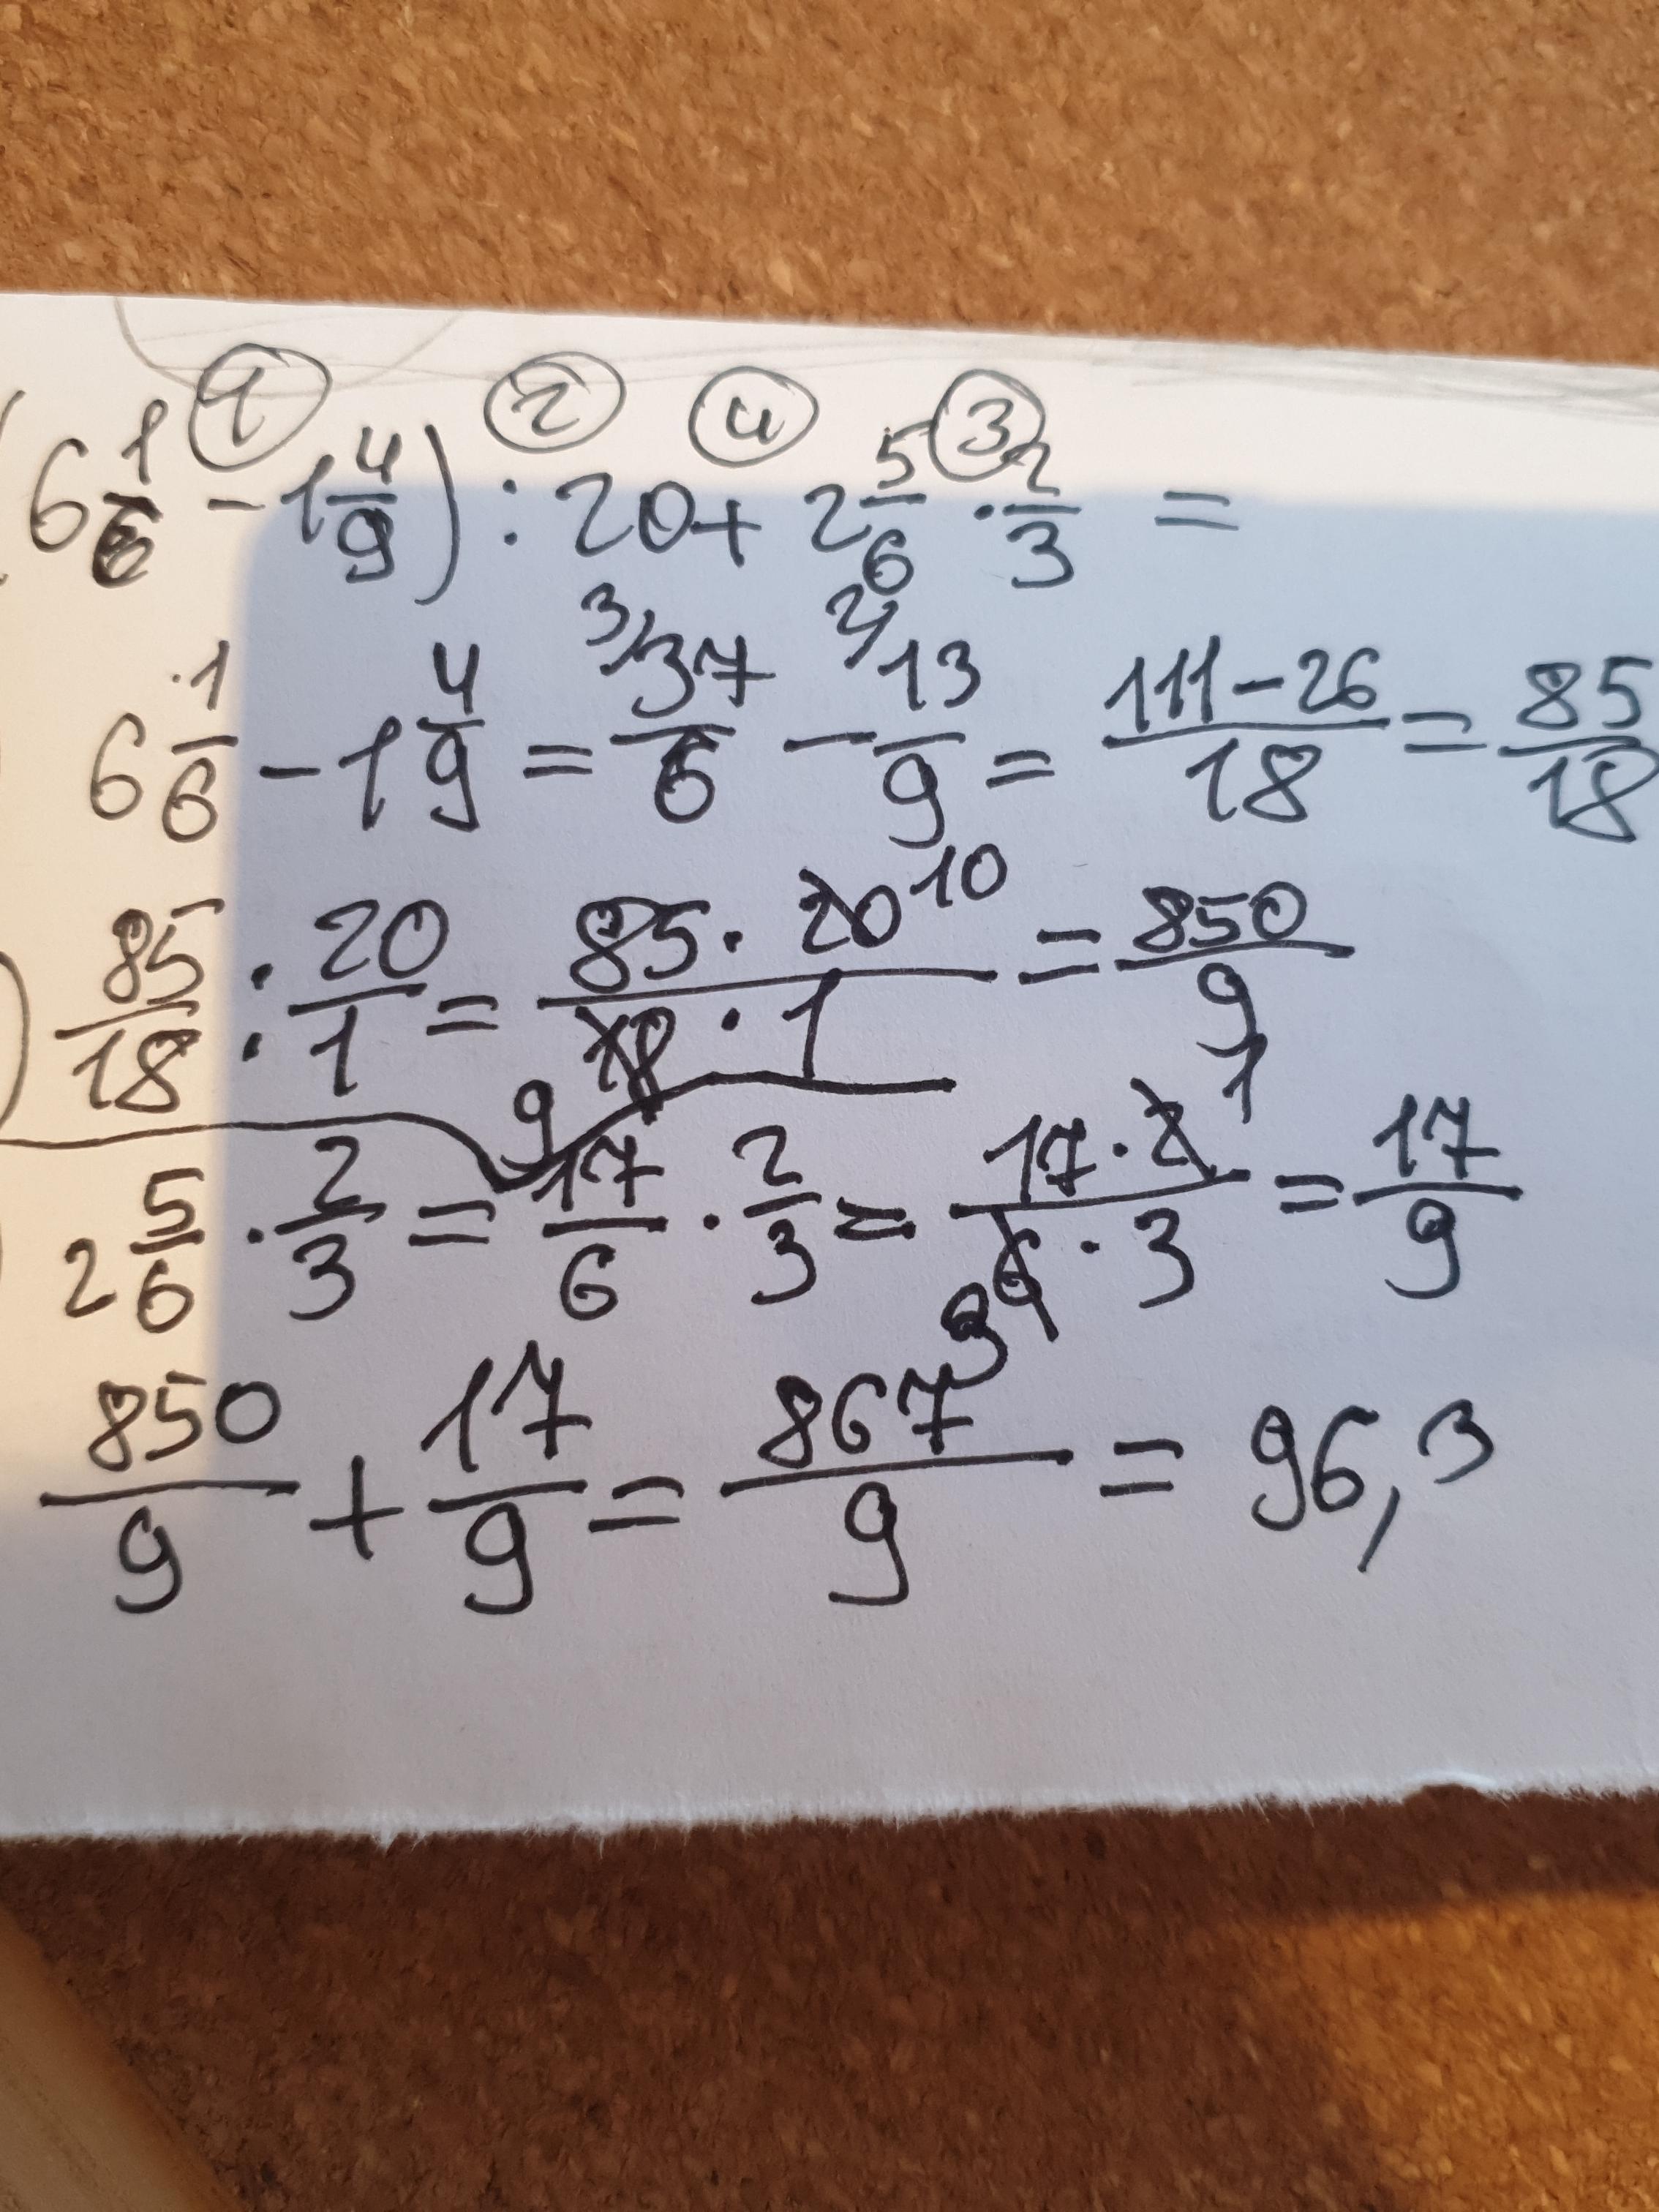 ① ② ④ ③
(6 1/6 - 1 4/9) : 20 + 2 5/6 · 2/3 =
6 1/6 - 1 4/9 = 3/ 37/6 - 2/ 13/9 = (111 - 26)/18 = 85/18
) 85/18 : 20/1 = (85 · 20 10)/(18 9 · 1) = 850/9
2 5/6 · 2/3 = 17/6 · 2/3 = (17 · 2 1)/(6 3 · 3) = 17/9
850/9 + 17/9 = 867/9 = 96,3